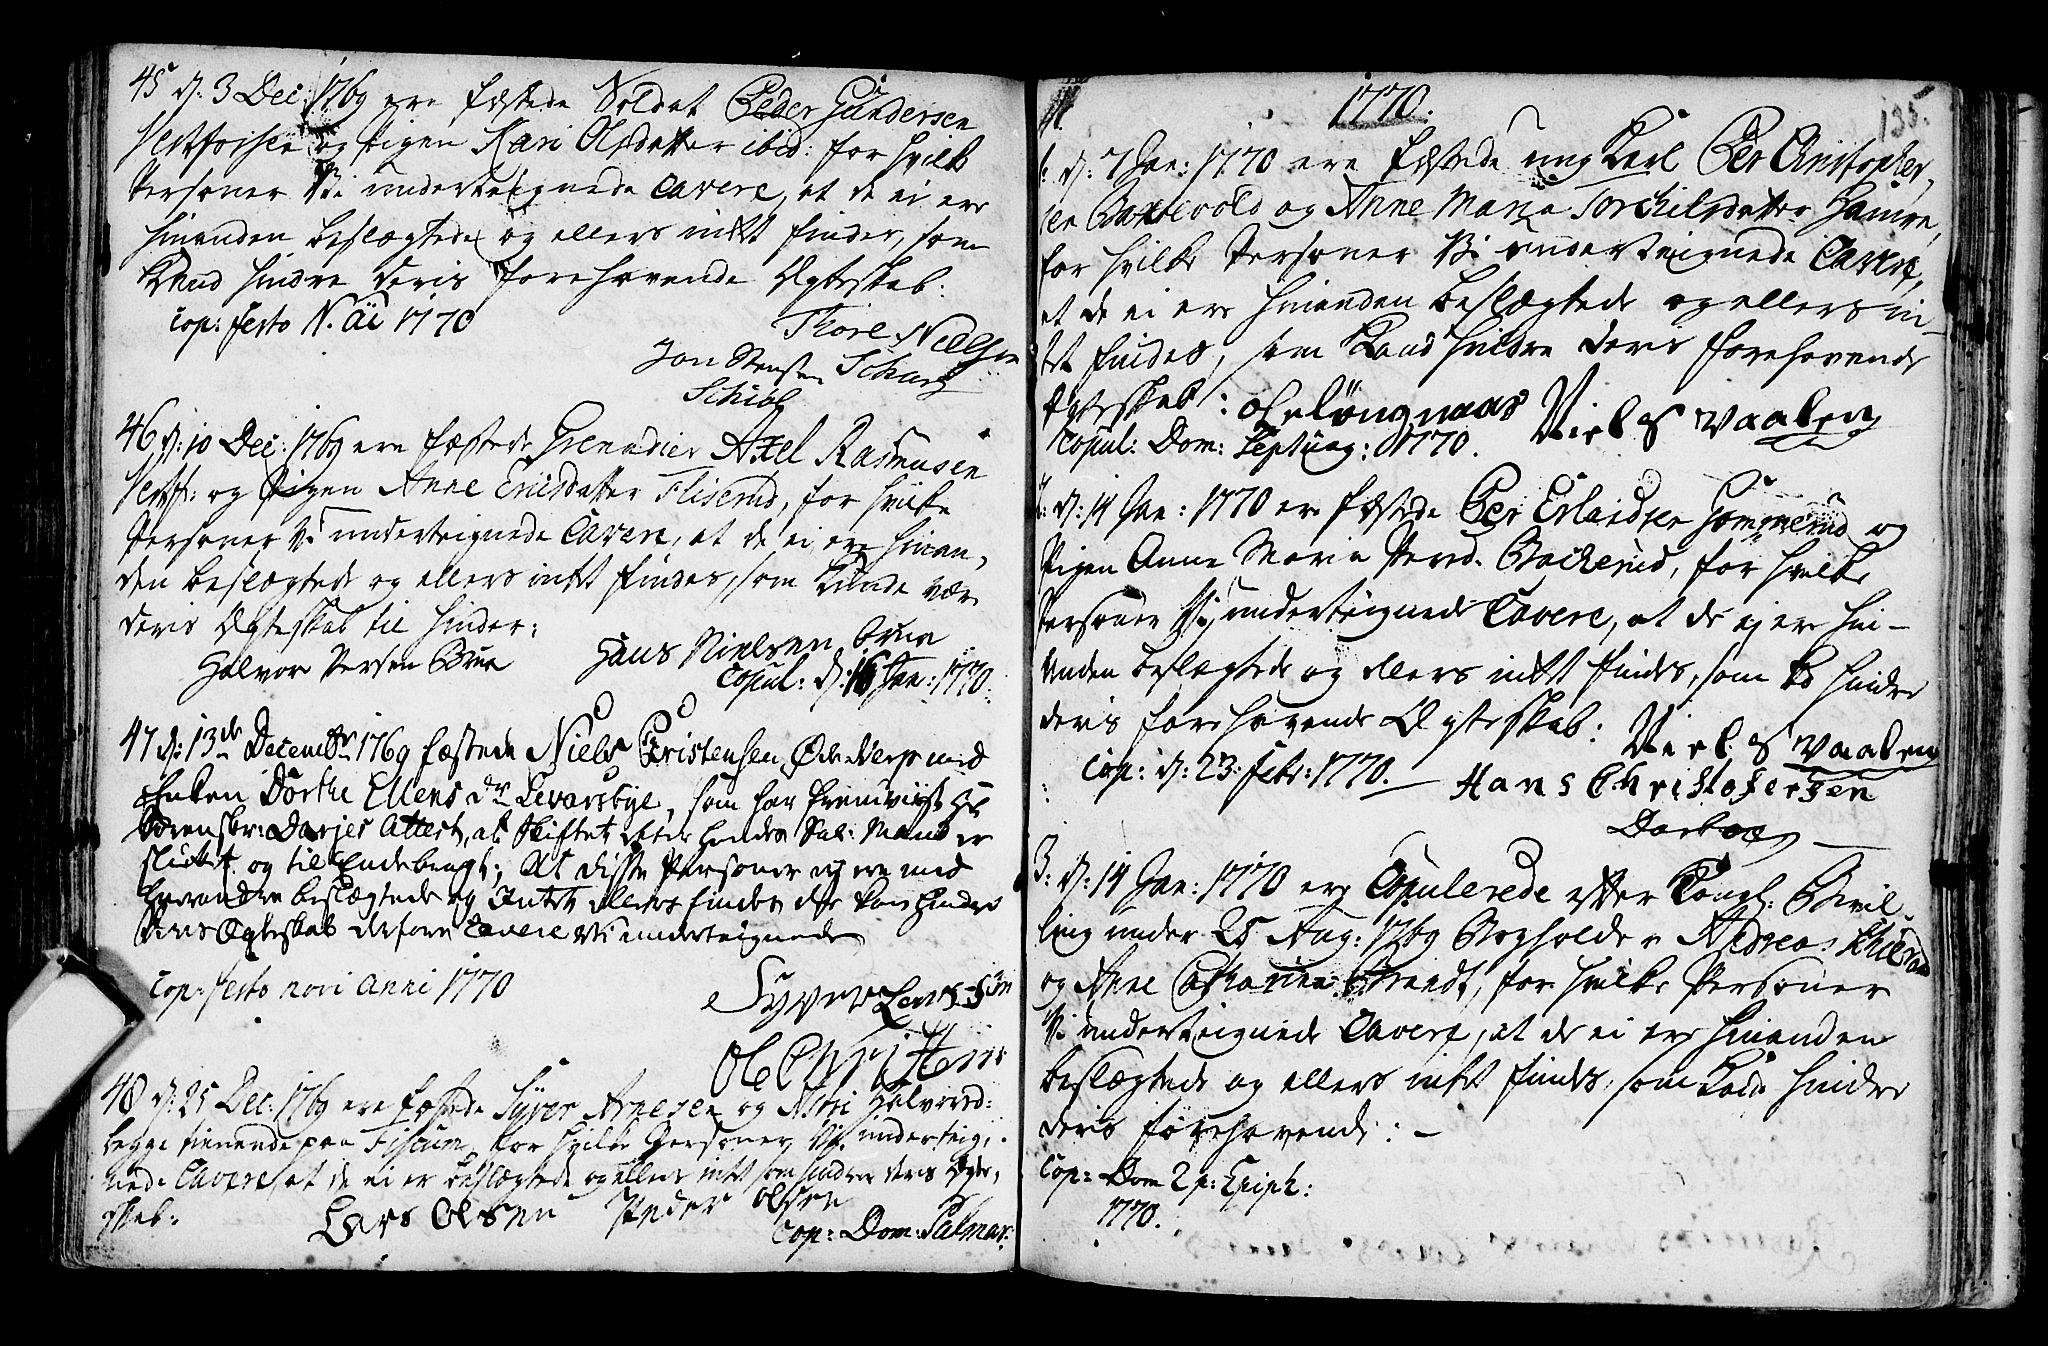 45 d: 3 Dec: 1769 ere fæstede Soldat Peder Gundersen
Vestfossen og Pigen Kari Olsdatter ibid: for hvilke
Personer Vi undertegnede Cavere, at de ei ere
hinanden beslægtede og ellers intet findes, som
Kand hindre deris forehavende Ægteskab:
Cop: festo N. ai 1770
Thore Nielsen
Jon Stensen Scharz
Schibl
46 d: 10 Dec: 1769 ere fæstede Grenadier Axel Rasmusen
Vestf: og Pigen Anne Ericsdatter Fliserud, for hvilke
Personer Vi underteignede Cavere, at de ei ere hinan-
den beslægtede og ellers intet findes, som Kunde være
deris Ægteskab til hinder:
Halvor Persen Grue Hans Nielsen Grue
Copul: d: 16 Jan: 1770.
47 d: 13de Decembr 1769 fæstede Niels Christensen Ødeverp med
Enken Dorthe Ellens dr Devarsbye, som har fremviist Hr
Sorenskr: Darjes Attest, at Skiftet efter hendes Sal: Mand er
sluttet og tilEndebragt; At disse Personer ej ere med
hverandre beslægtede og Intet ellers findes der kan hindre
deris Ægteskab derfore Cavere Vi underteignede
Cop: festo novi anni 1770
Syver Larssøn
Ole Christens
48 d: 25 Dec: 1769 ere fæstede Syver Arnesen og Mari Halvorsd:
begge tienende paa Fiscum, for hvilke Personer Vi underteig-
nede Cavere, at de ei er beslægtede og ellers intet som hindrer deris Ægte-
skab:
Lars Olsen Peder Olsen
Cop: Dom: Palmar:
1770.
135.
1: d: 7 Jan: 1770 ere fæstede ung Karl Per Christopher-
sen og Anne Maria Torchilsdatter Hamre,
for hvilke Personer Vi underteignede Cavere,
at de ei ere hinanden beslægtede og ellers in-
tet findes, som Kand hindre deris forehavende
Ægteskab: ole løngnaas Niels Svaalen
Copul: Dom: Septuag: 1770.
2: d: 14 Jan: 1770 ere fæstede Per Erlandsen Sommerud og
Pigen Anne Maria Persd. Backerud, for hvilke
Personer Vi underteignede Cavere, at de ej ere hin-
anden beslægtede og ellers intet findes, som ka hindre
deris forehavende Ægteskab: Niels Svaalen
Cop: d: 23 febr: 1770. Hans Christofersen
Darboe
3: d: 14 Jan: 1770 ere Copulerede efter Kongl: Bevil-
ling under 25 Aug: 1769 Bogholder Andreas
og Anne Catharina Brandt, for hvilke Personer
Vi underteignede Cavere, at de ei ere hinanden
beslægtede og ellers intet findes, som Kand hindre
deris forehavende:-
Cop: Dom 2 p: Epiph:
1770.